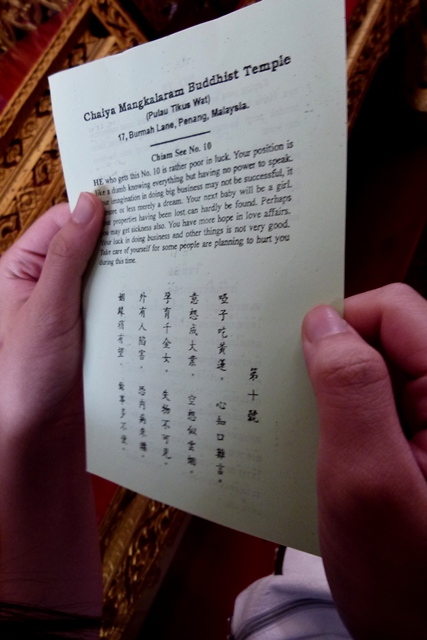 Chaiya Mangkalaram Buddhist Temple
(Pulau Tikus Wat)
17, Burmah Lane, Penang, Malaysia.
Chiam See No. 10
HE who gets this No. 10 is rather poor in luck. Your position is
like a dumb knowing everything but having no power to speak.
imagination in doing big business may not be successful, it
or less merely a dream. Your next baby will be a girl.
properties having been lost can hardly be found. Perhaps
may get sickness also. You have more hope in love affairs.
Your luck in doing business and other things is not very good.
Take care of yourself for some people are planning to hurt you
during this time.
第十號
啞子吃黃蓮。 心知口難言。
意想成大業。 空想似雲烟。
孕育千金女。 失物不可見。
外有人陷害。 恐内病來纏。
姻緣稍有望。 做事多不便。